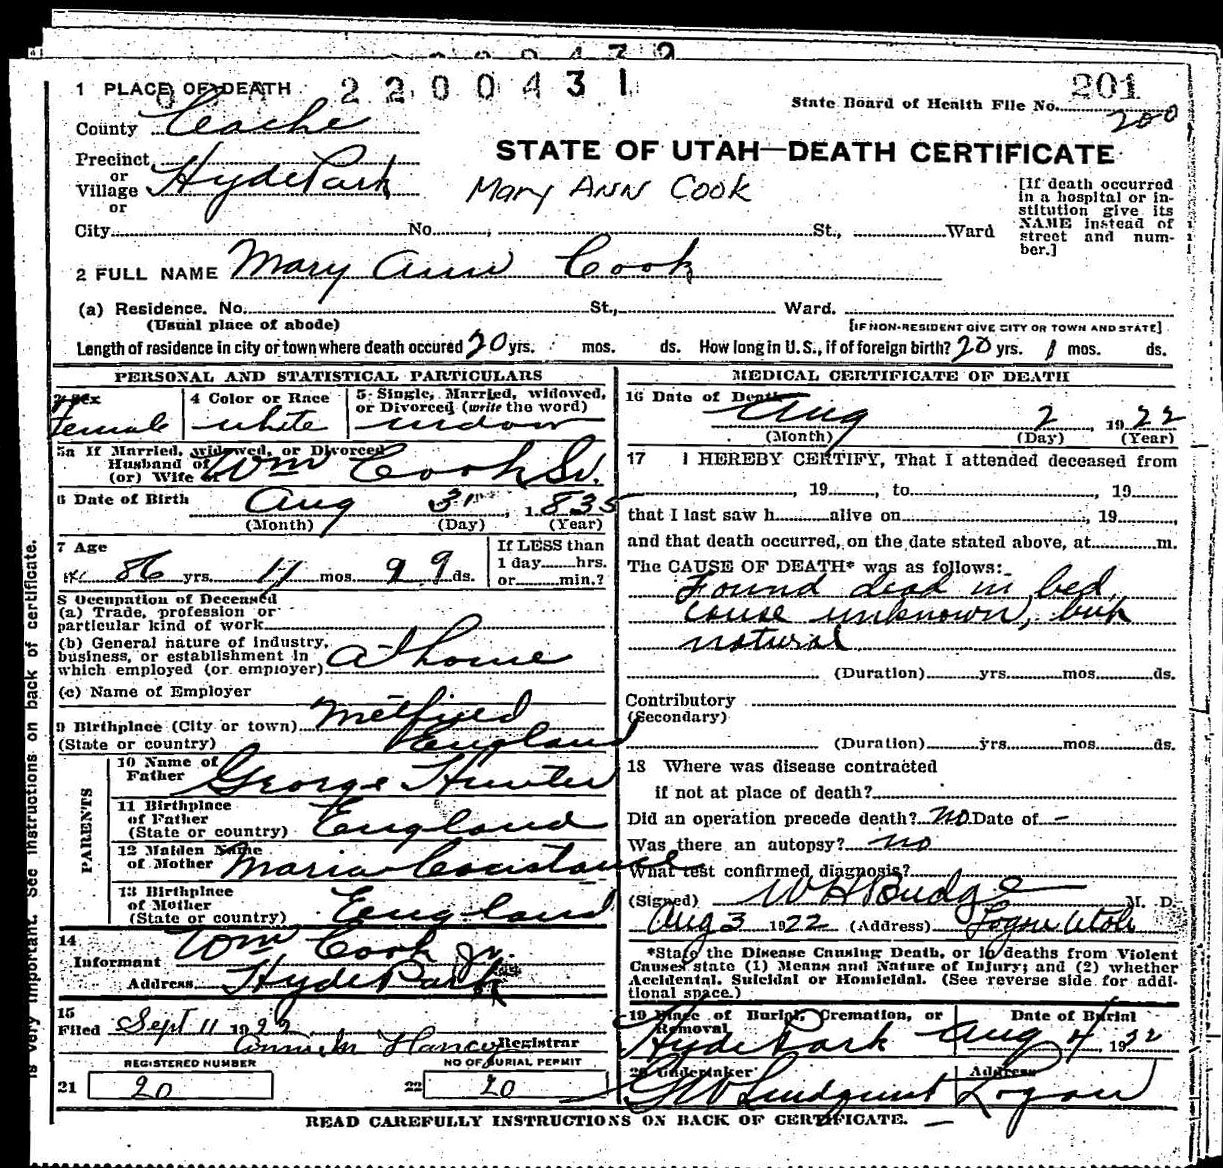 1 PLACE OF DEATH 2 2 0 0 4 3 1
State Board of Health File No. 201
200
County Cache
Precinct or Village Hyde Park
or
STATE OF UTAH—DEATH CERTIFICATE
Mary Ann Cook
[If death occurred in a hospital or institution give its NAME instead of street and number.]
City No. , St., Ward
2 FULL NAME Mary Ann Cook
(a) Residence. No. St., Ward.
(Usual place of abode) [IF NON-RESIDENT GIVE CITY OR TOWN AND STATE]
Length of residence in city or town where death occured 20 yrs. mos. ds. How long in U. S., if of foreign birth? 20 yrs. 1 mos. ds.
PERSONAL AND STATISTICAL PARTICULARS
3 Sex Female
4 Color or Race white
5 Single, Married, widowed, or Divorced (write the word) widow
5a If Married, widowed, or Divorced
Husband of
(or) Wife of Wm Cook Sr.
6 Date of Birth Aug 31 , 1835
(Month) (Day) (Year)
7 Age
86 yrs. 11 mos. ds.
If LESS than
1 day hrs.
or min.?
8 Occupation of Deceased
(a) Trade, profession or
particular kind of work
(b) General nature of industry,
business, or establishment in
which employed (or employer) at home
(c) Name of Employer
9 Birthplace (City or town)
(State or country) England
PARENTS
10 Name of Father George Hunter
11 Birthplace of Father (State or country) England
12 Maiden Name of Mother Maria
13 Birthplace of Mother (State or country) England
14
Informant Wm Cook Jr.
Address Hyde Park
15
Filed Sept 11 1922
Registrar
REGISTERED NUMBER NO OF BURIAL PERMIT
21 20 22 20
MEDICAL CERTIFICATE OF DEATH
16 Date of Death Aug 2 , 1922
(Month) (Day) (Year)
17 I HEREBY CERTIFY, That I attended deceased from
, 19 , to , 19
that I last saw h alive on , 19 ,
and that death occurred, on the date stated above, at m.
The CAUSE OF DEATH* was as follows:
Found dead in bed,
cause unknown, but
natural
(Duration) yrs. mos. ds.
Contributory
(Secondary)
(Duration) yrs. mos. ds.
18 Where was disease contracted
if not at place of death?
Did an operation precede death? no Date of -
Was there an autopsy? no
What test confirmed diagnosis?
(Signed) W H Budge M. D.
Aug 3 1922 (Address) Logan Utah
*State the Disease Causing Death, or in deaths from Violent
Causes state (1) Means and Nature of Injury; and (2) whether
Accidental, Suicidal or Homicidal. (See reverse side for addi-
tional space.)
19 Place of Burial, Cremation, or Removal Hyde Park
Date of Burial Aug 4, 19
20 Undertaker G W Lindquist
Address Logan
READ CAREFULLY INSTRUCTIONS ON BACK OF CERTIFICATE.
is very important. See instructions on back of certificate.